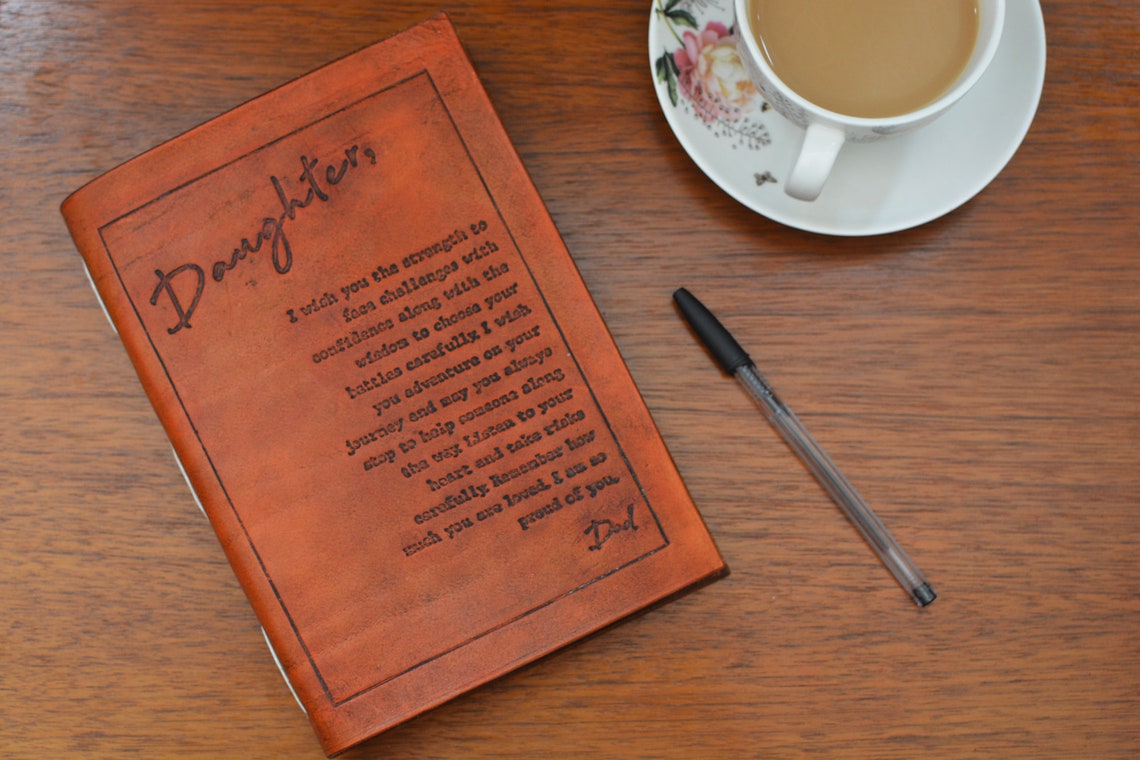 Daughter,
I wish you the strength to
face challenges with
confidence along with the
wisdom to choose your
battles carefully. I wish
you adventure on your
journey and may you always
stop to help someone along
the way. Listen to your
heart and take risks
carefully. Remember how
much you are loved. I am so
proud of you.
Dad